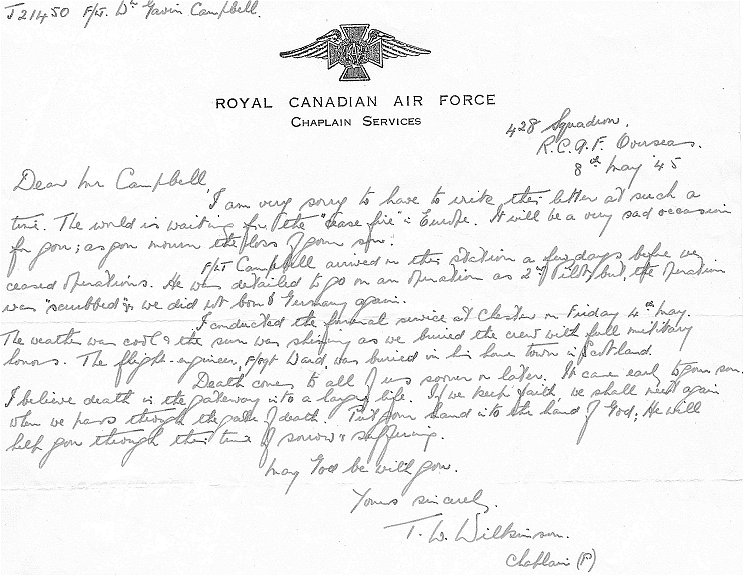 J21450 F/Lt. Wm Gavin Campbell.
ROYAL CANADIAN AIR FORCE
CHAPLAIN SERVICES
428 Squadron.
R.C.A.F. Overseas.
8th May '45
Dear Mr Campbell,
I am very sorry to have to write this letter at such a
time. The world is waiting for the "cease fire" in Europe. It will be a very sad occasion
for you; as you mourn the loss of your son.
F/Lt Campbell arrived on this station a few days before we
ceased operations. He was detailed to go on an operation as 2nd Pilot, but, the operation
was "scrubbed" & we did not bomb Germany again.
I conducted the funeral service at Chester on Friday 4th May.
The weather was cool & the sun was shining as we buried the crew with full military
honours. The flight-engineer, F/Sgt Ward, was buried in his home town in Scotland.
Death comes to all of us sooner or later. It came early to your son.
I believe death is the gateway into a larger life. If we keep faith, we shall meet again
when we pass through the gates of death. Put your hand into the hand of God; He will
help you through this time of sorrow & suffering.
May God be with you.
Yours sincerely,
T. W. Wilkinson.
Chaplain (P)